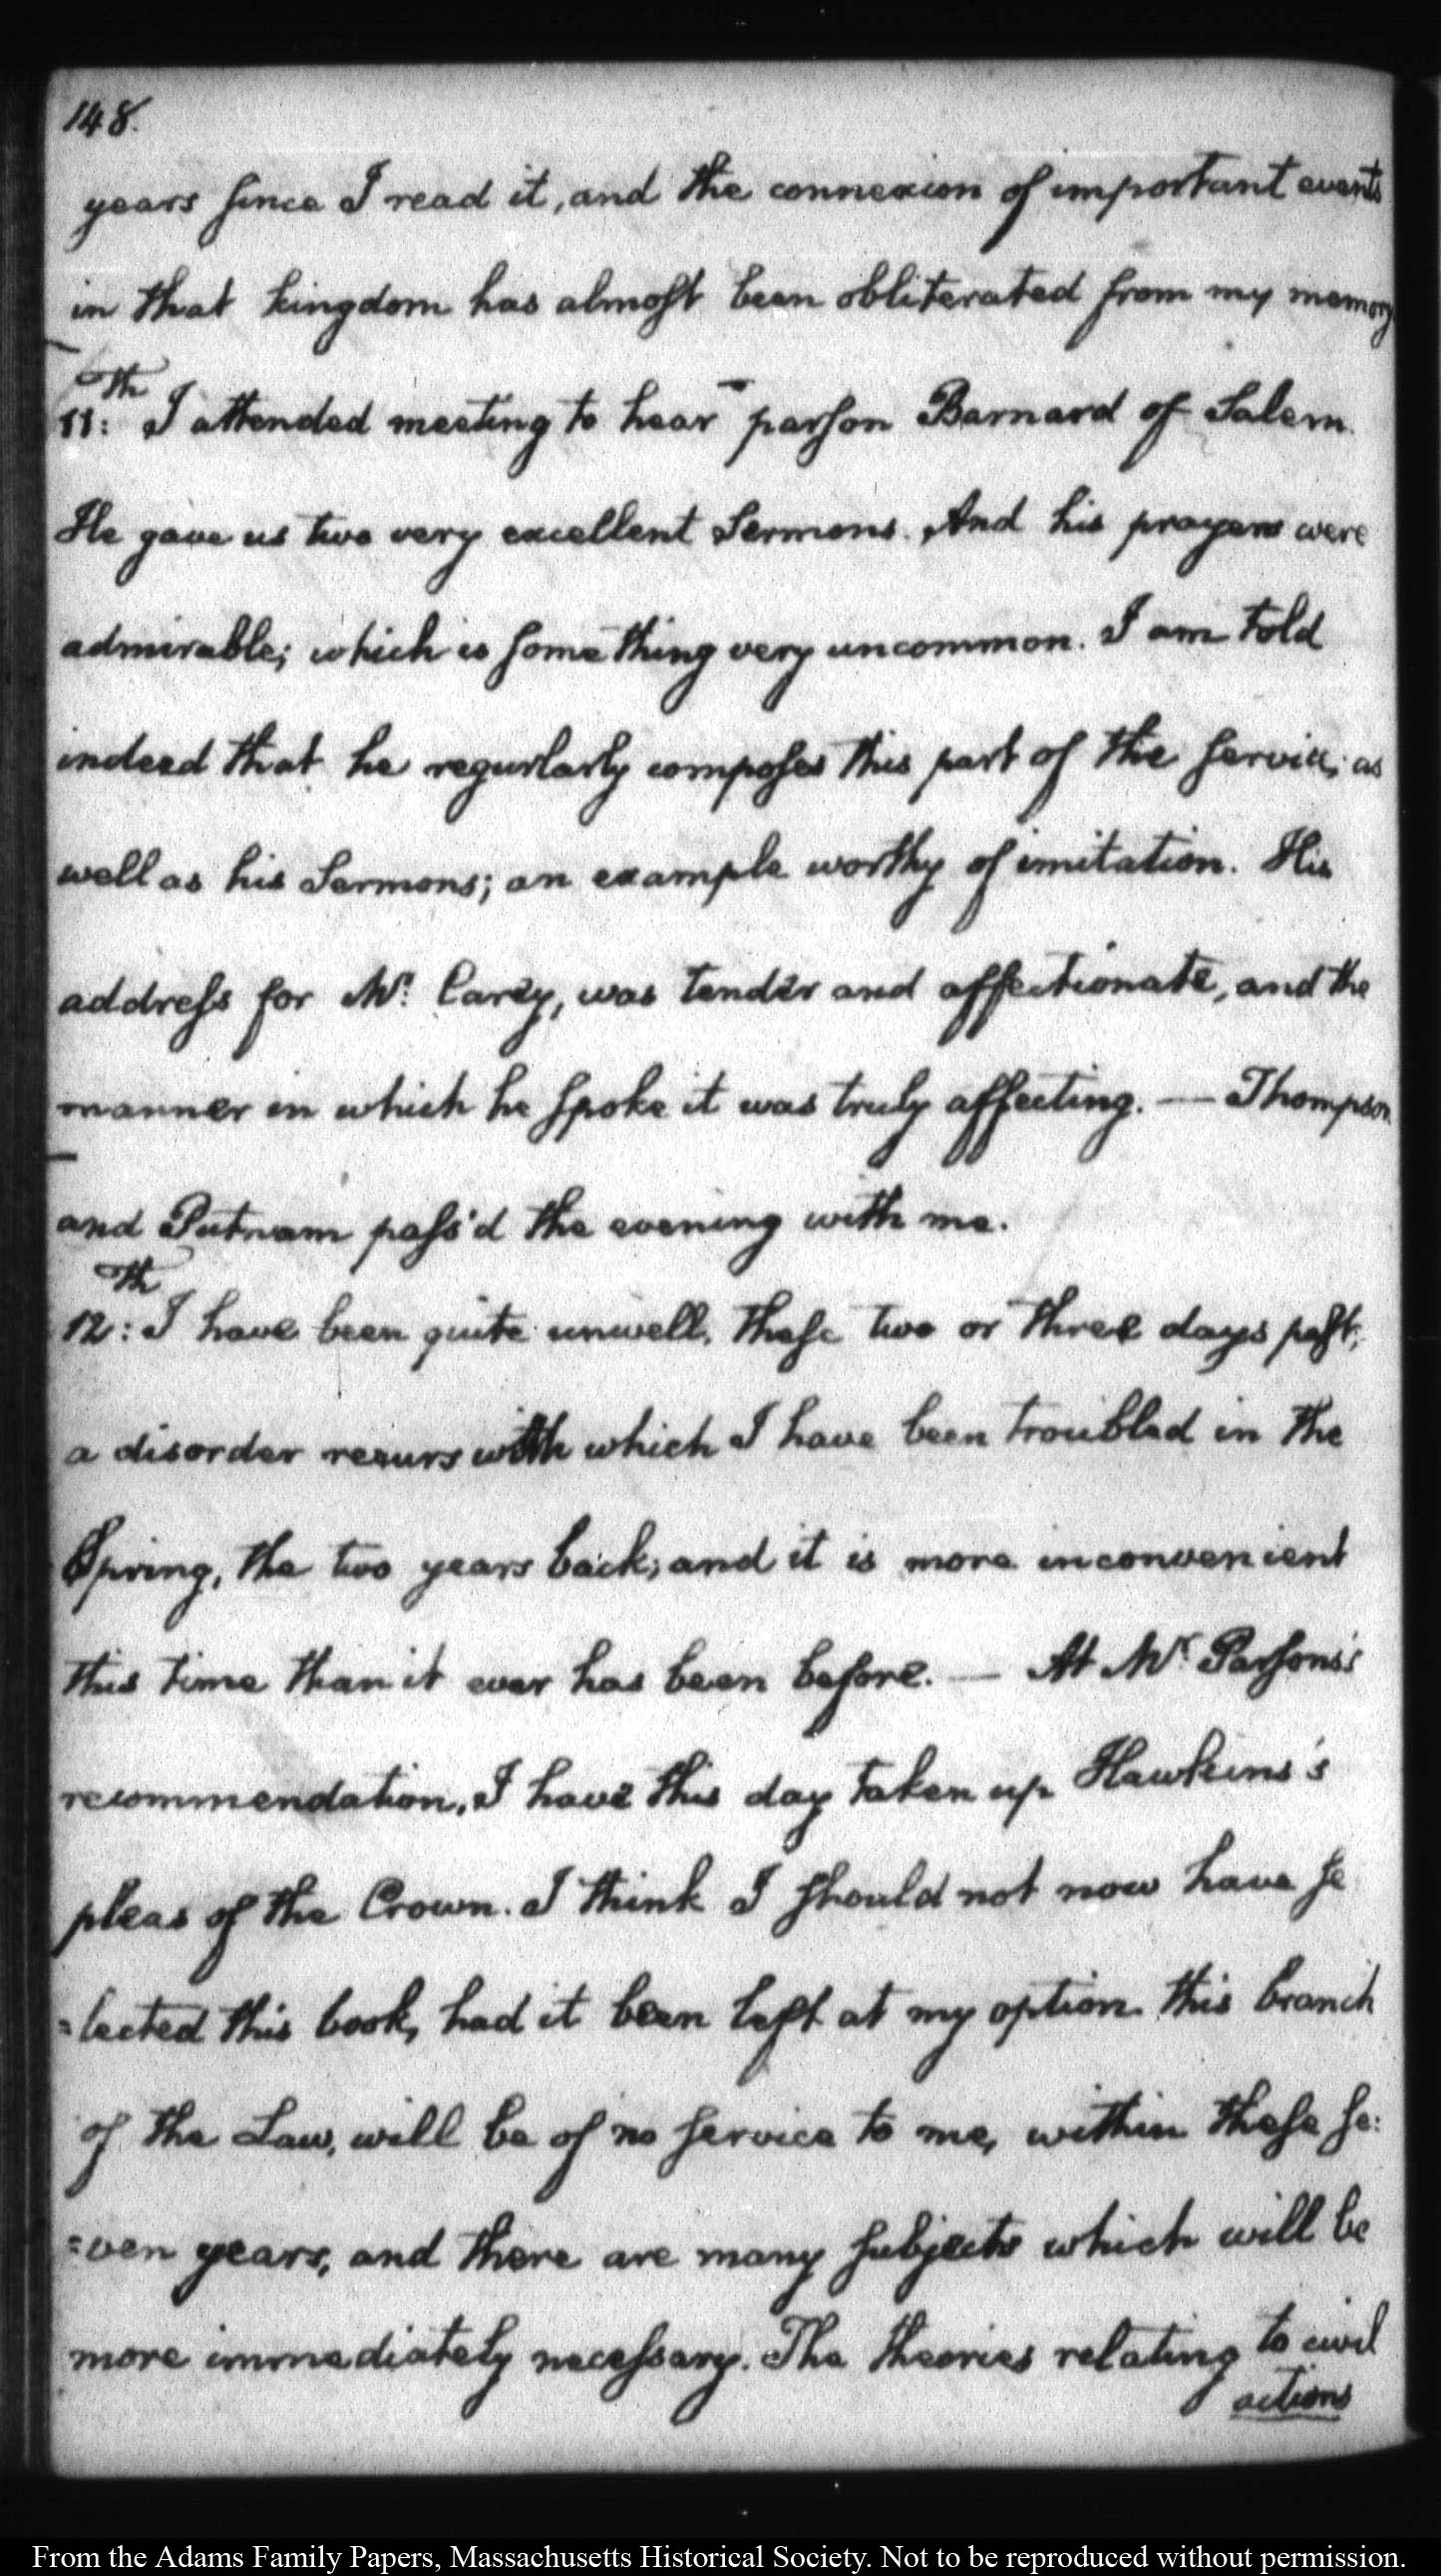 148.
years since I read it, and the connexion of important events
in that kingdom has almost been obliterated from my memory
11:th I attended meeting to hear parson Barnard of Salem.
He gave us two very excellent Sermons. And his prayers were
admirable; which is something very uncommon. I am told
indeed that he regurlarly composes this part of the service, as
well as his Sermons; an example worthy of imitation. His
address for Mr. Carey, was tender and affectionate, and the
manner in which he spoke it was truly affecting. — Thompson
and Putnam pass'd the evening with me.
12:th I have been quite unwell, these two or three days past,
a disorder recurs with which I have been troubled in the
Spring, the two years back; and it is more inconvenient
this time than it ever has been before. — At Mr. Parsons's
recommendation, I have this day taken up Hawkins's
pleas of the Crown. I think I should not now have se
=lected this book, had it been left at my option. this branch
of the Law, will be of no service to me, within these se:
=ven years, and there are many subjects which will be
more immediately necessary. The theories relating to civil
actions
From the Adams Family Papers, Massachusetts Historical Society. Not to be reproduced without permission.